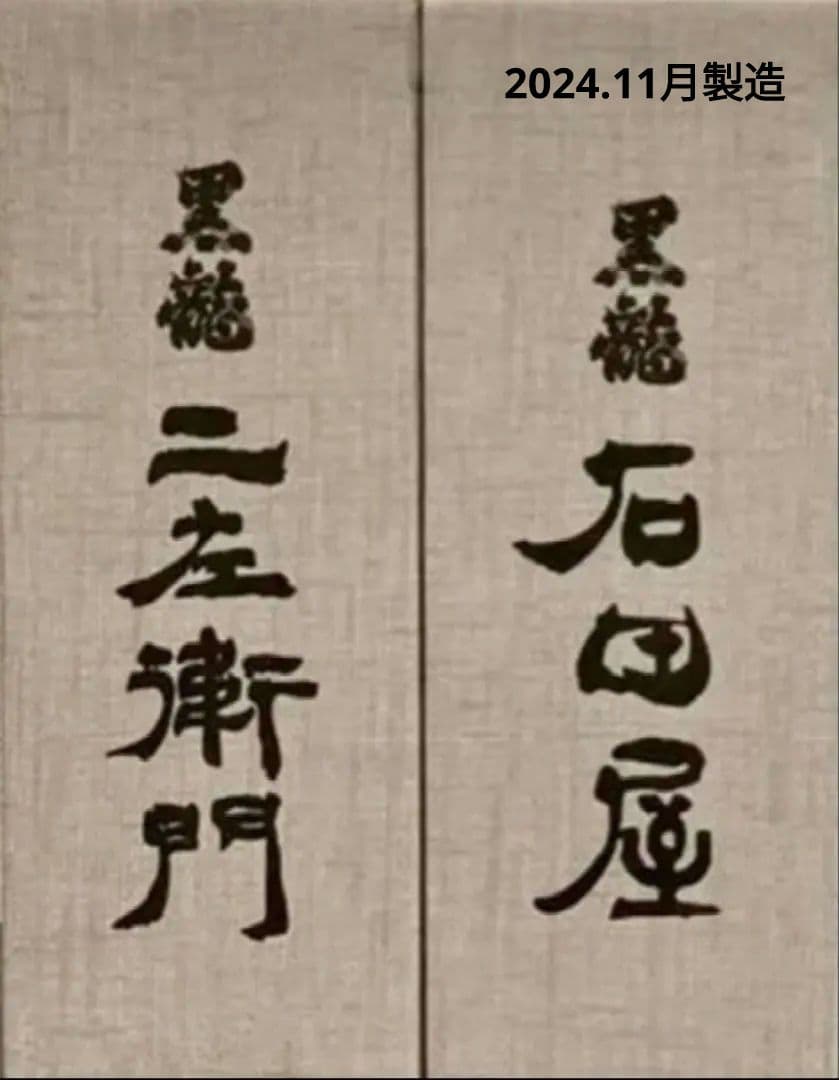 2024.11月製造
黒龍
石田屋
黒龍
二左衛門